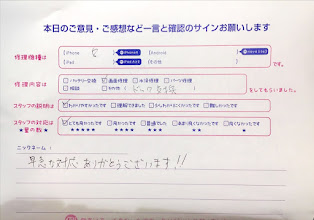 本日のご意見・ご感想など一言と確認のサインお願いします
修理機種は
[iPhone 6
[iPad
[Android
[その他
です。
修理内容は
バッテリー交換 画面修理 水没修理 パーツ修理
相談 その他
をしてもらいました。
スタッフの説明は わかりやすかったです 理解できました 少しわかりにくかったです 難しかったです
スタッフの対応は とても良かったです 良かったです 普通でした あまり良くなかったです 良くなかったです
★星の数★ ★★★★★ ★★★★ ★★★ ★★ ★
ニックネーム:
早急な対応、ありがとうございます!!